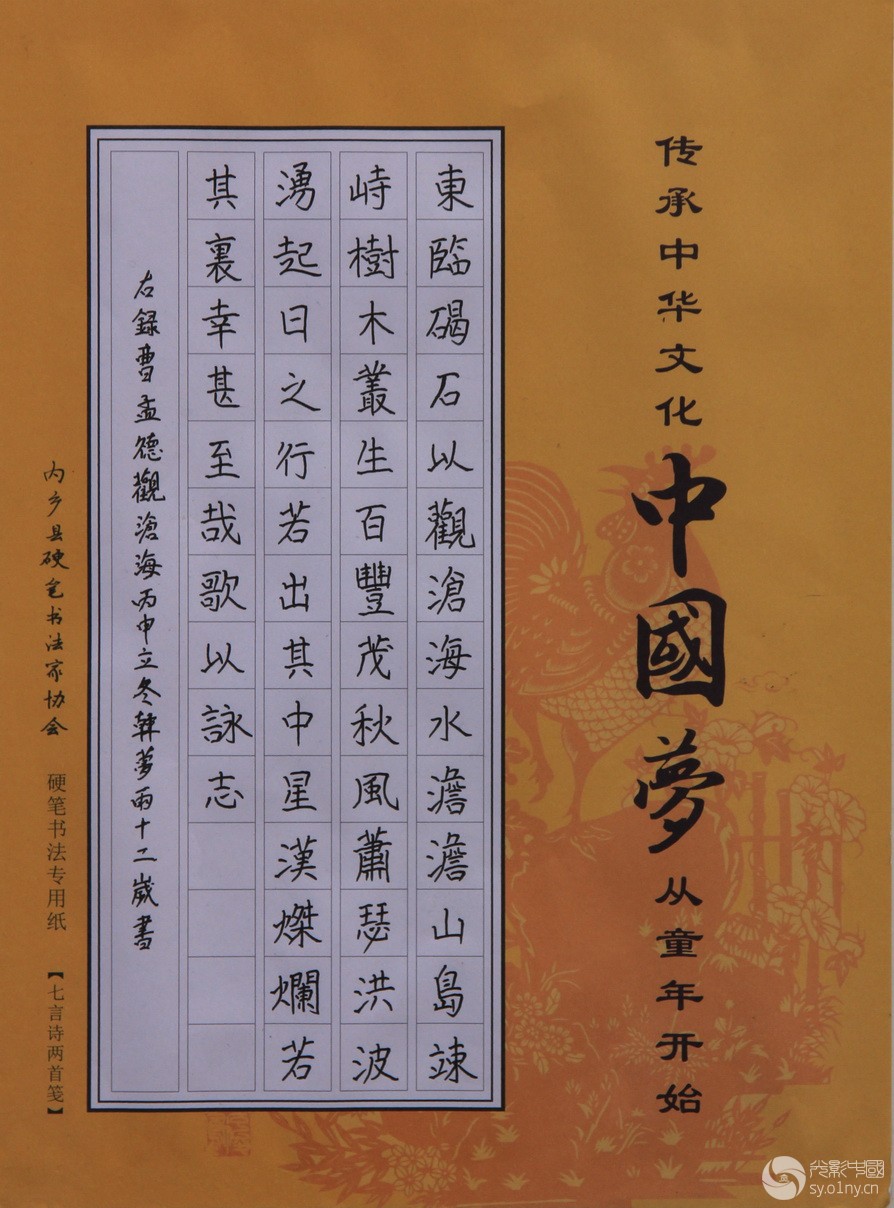 传承中华文化
中國夢
从童年开始
東臨碣石以觀滄海水澹澹山島竦
峙樹木叢生百豐茂秋風蕭瑟洪波
湧起日之行若出其中星漢燦爛若
其裏幸甚至哉歌以詠志
右錄曹孟德觀滄海丙申立冬韓夢雨十二歲書
内乡县硬笔书法家协会 硬笔书法专用纸 【七言诗两首笺】
光影中國
sy.o1ny.cn